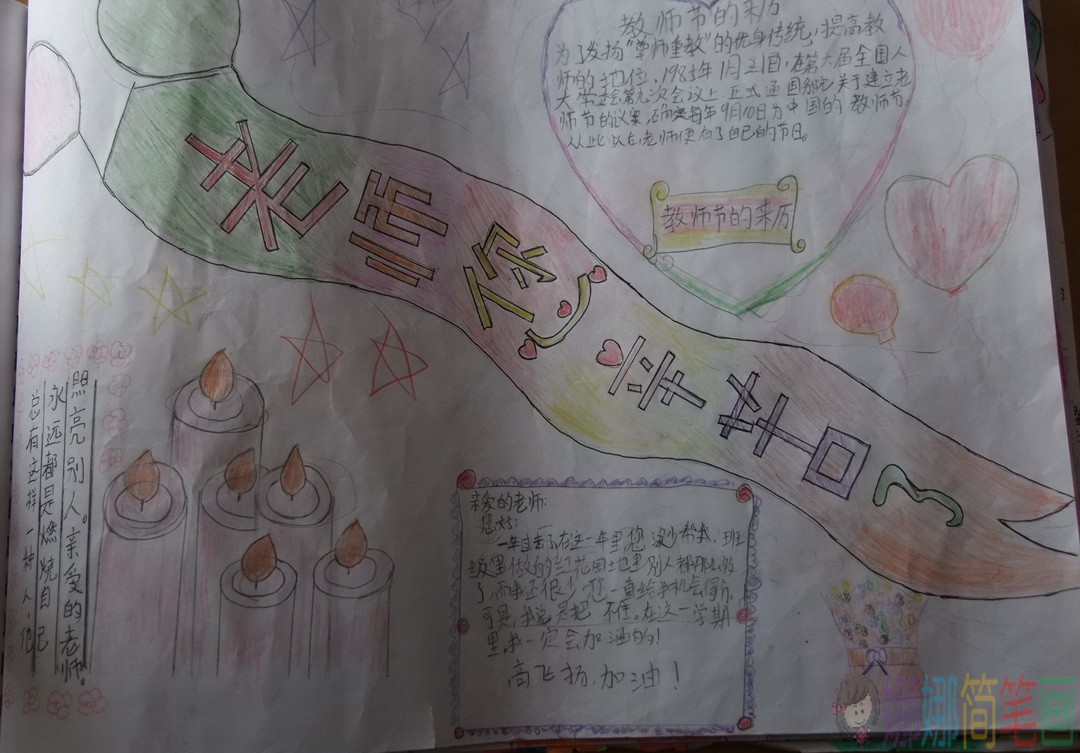 教师节的来历
为了发扬“尊师重教”的优身传统，提高教
师的地位，1985年1月21日，在第六届全国人
大常委会第九次会议上，正式通国务院关于建立老
师节的议案，确定每年9月10日为中国的教师节，
从此以后老师便有了自己的节日。
教师节的来历
老师您辛苦了
总有这样一种人，他
永远都是燃烧自己
照亮别人。亲爱的老师。
亲爱的老师：
您好：
一年过去了，在这一年里您没少帮我，班
级里做的 花园土地里别人都那么
了，而我还很少，您一直给我机会
可是，我总是把 不住。在这一学期
里，我一定会加油的！
高飞扬，加油！
娜娜简笔画